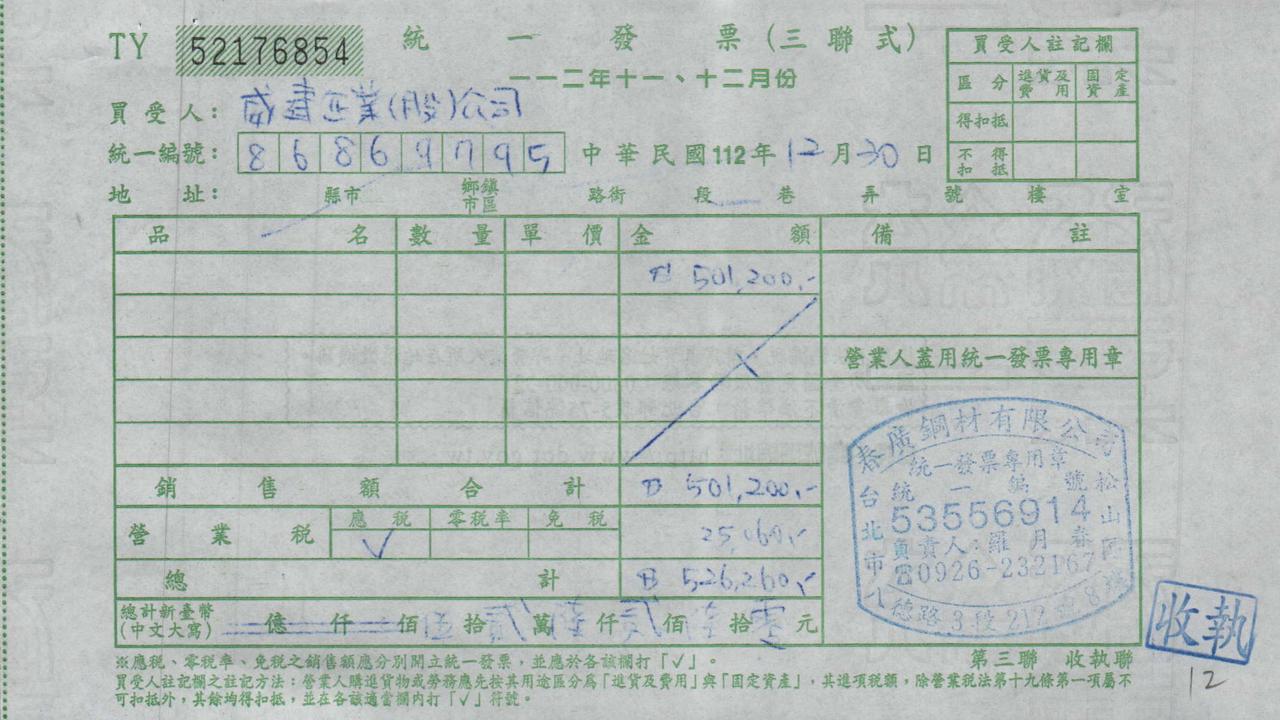 TY 52176854 統一發票(三聯式)
一一二年十一、十二月份
買受人註記欄
區分 進貨及費用 固定資產
得扣抵
不得扣抵
買受人: 威聿企業(股)公司
統一編號: 86869795 中華民國112年12月30日
地址: 縣市 鄉鎮市區 路街 段 巷 弄 號 樓 室
品名 數量 單價 金額 備註
501,200.-
營業人蓋用統一發票專用章
銷售額合計 501,200.-
營業稅 應稅 零稅率 免稅 25,060.-
✓
總計 526,260.-
總計新臺幣(中文大寫) 億 仟 佰 伍 拾 貳 萬 陸 仟 貳 佰 陸 拾 零 元
春廣鋼材有限公司
統一發票專用章
統一編號
53556914
負責人:羅月春
☎0926-232167
台北市松山區
八德路3段212
收執
12
第三聯 收執聯
※應稅、零稅率、免稅之銷售額應分別開立統一發票,並應於各該欄打「√」。
買受人註記欄之註記方法:營業人購進貨物或勞務應先按其用途區分為「進貨及費用」與「固定資產」,其進項稅額,除營業稅法第十九條第一項屬不
可扣抵外,其餘均得扣抵,並在各該適當欄內打「√」符號。